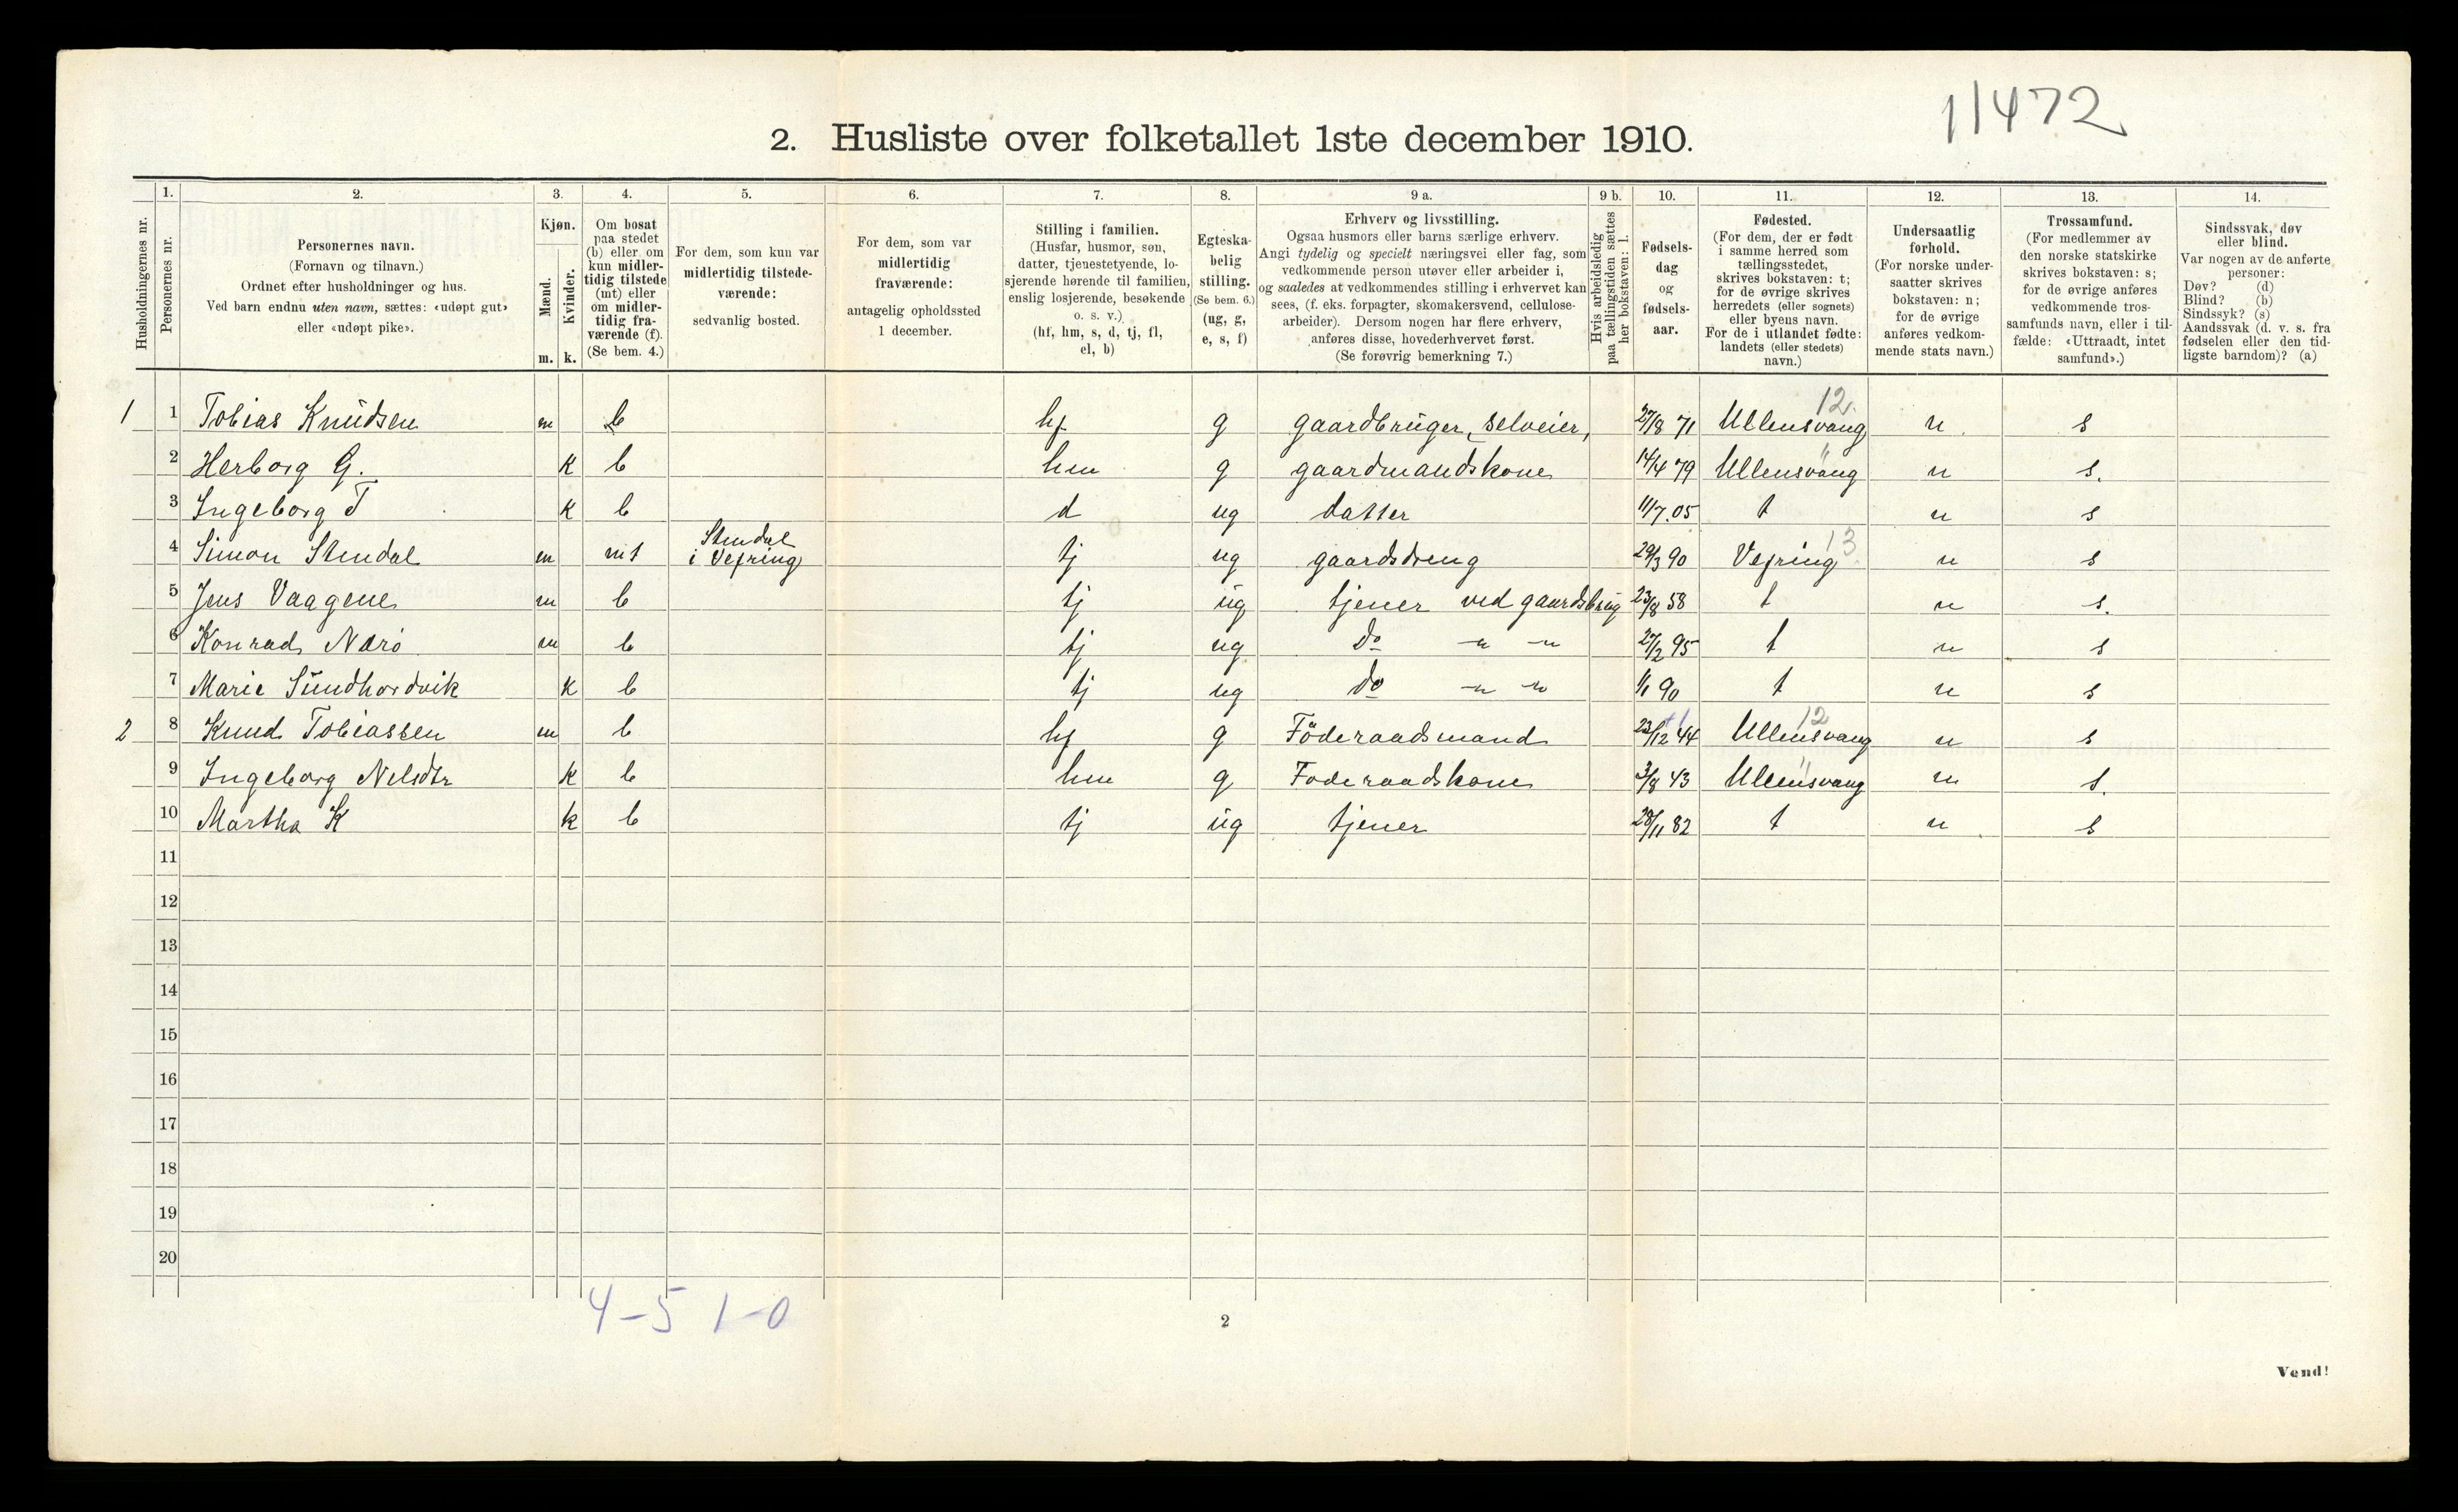 11472
2. Husliste over folketallet 1ste december 1910.
Husholdningernes nr.
1.
Personernes nr.
2.
Personernes navn.
(Fornavn og tilnavn.)
Ordnet efter husholdninger og hus.
Ved barn endnu uten navn, sættes: «udøpt gut»
eller «udøpt pike».
3.
Kjøn.
Mænd.
Kvinder.
m. k.
4.
Om bosat
paa stedet
(b) eller om
kun midler-
tidig tilstede
(mt) eller
om midler-
tidig fra-
værende (f).
(Se bem. 4.)
5.
For dem, som kun var
midlertidig tilstede-
værende:
sedvanlig bosted.
6.
For dem, som var
midlertidig
fraværende:
antagelig opholdssted
1 december.
7.
Stilling i familien.
(Husfar, husmor, søn,
datter, tjenestetyende, lo-
sjerende hørende til familien,
enslig losjerende, besøkende
o. s. v.)
(hf, hm, s, d, tj, fl,
el, b)
8.
Egteska-
belig
stilling.
(Se bem. 6.)
(ug, g,
e, s, f)
9 a.
Erhverv og livsstilling.
Ogsaa husmors eller barns særlige erhverv.
Angi tydelig og specielt næringsvei eller fag, som
vedkommende person utøver eller arbeider i,
og saaledes at vedkommendes stilling i erhvervet kan
sees, (f. eks. forpagter, skomakersvend, cellulose-
arbeider). Dersom nogen har flere erhverv,
anføres disse, hovederhvervet først.
(Se forøvrig bemerkning 7.)
9 b.
Hvis arbeidsledig
paa tællingstiden sættes
her bokstaven: l.
10.
Fødsels-
dag
og
fødsels-
aar.
11.
Fødested.
(For dem, der er født
i samme herred som
tællingsstedet,
skrives bokstaven: t;
for de øvrige skrives
herredets (eller sognets)
eller byens navn.
For de i utlandet fødte:
landets (eller stedets)
navn.)
12.
Undersaatlig
forhold.
(For norske under-
saatter skrives
bokstaven: n;
for de øvrige
anføres vedkom-
mende stats navn.)
13.
Trossamfund.
(For medlemmer av
den norske statskirke
skrives bokstaven: s;
for de øvrige anføres
vedkommende tros-
samfunds navn, eller i til-
fælde: «Uttraadt, intet
samfund».)
14.
Sindssvak, døv
eller blind.
Var nogen av de anførte
personer:
Døv? (d)
Blind? (b)
Sindssyk? (s)
Aandssvak (d. v. s. fra
fødselen eller den tid-
ligste barndom)? (a)
12.
1 1 Tobias Knudsen m b hf g gaardbruger, selveier, 27/8 71 Ullensvang n s
2 Herborg G. K b hm g gaardmandskone 14/4 79 Ullensvang n s.
3 Ingeborg T K b d ug datter 11/7.05 t n s
Stendal 13
4 Simon Stendal m mt i Vefring tj ug gaardsdreng 29/3 90 Vefring n s
5 Jens Vaagene m b tj ug tjener ved gaardsbrug 23/8 58 t n s.
6 Konrad Nærö m b tj ug do " " 27/2 95 t n s
7 Marie Sundhordvik K b tj ug do " " 1/1 90 t n s
12
2 8 Knud Tobiassen m b hf g Föderaadsmand 23/12 44 Ullensvang n s
9 Ingeborg Nelsdtr K b hm g Foderaadskone 3/8 43 Ullensvang n s.
10 Martha K k b tj ug tjener 28/11 82 t n s
11
12
13
14
15
16
17
18
19
20
4-5 1-0
2
Vend!